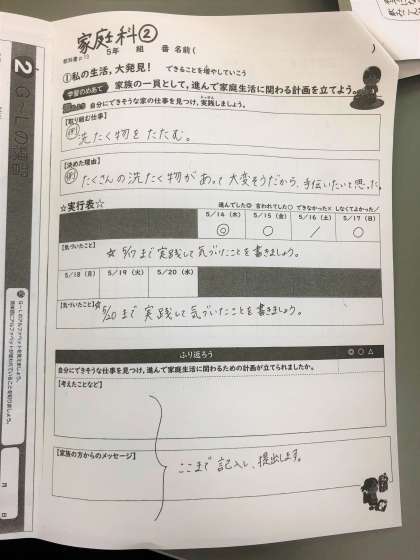 家庭科②
教科書p.13
5年 組 番 名前( )
①私の生活，大発見！ できることを増やしていこう
学習のめあて 家族の一員として，進んで家庭生活に関わる計画を立てよう。
自分にできそうな家の仕事を見つけ，実践しましょう。
【取り組む仕事】
例 洗たく物をたたむ。
【決めた理由】
例 たくさんの洗たく物があって大変そうだから、手伝いたいと思った。
☆実行表☆
進んでした◎ 言われてした○ できなかった× しなくてよかった／
5/14（木） 5/15（金） 5/16（土） 5/17（日）
◎ ○ ／ ○
【気づいたこと】
☆ 5/17まで実践して気づいたことを書きましょう。
5/18（月） 5/19（火） 5/20（水）
【気づいたこと】
☆ 5/20まで実践して気づいたことを書きましょう。
ふり返ろう ◎ ○ △
自分にできそうな仕事を見つけ，進んで家庭生活に関わるための計画が立てられましたか。
【考えたことなど】
【家族の方からのメッセージ】
ここまで記入し、提出します。
2
月 日